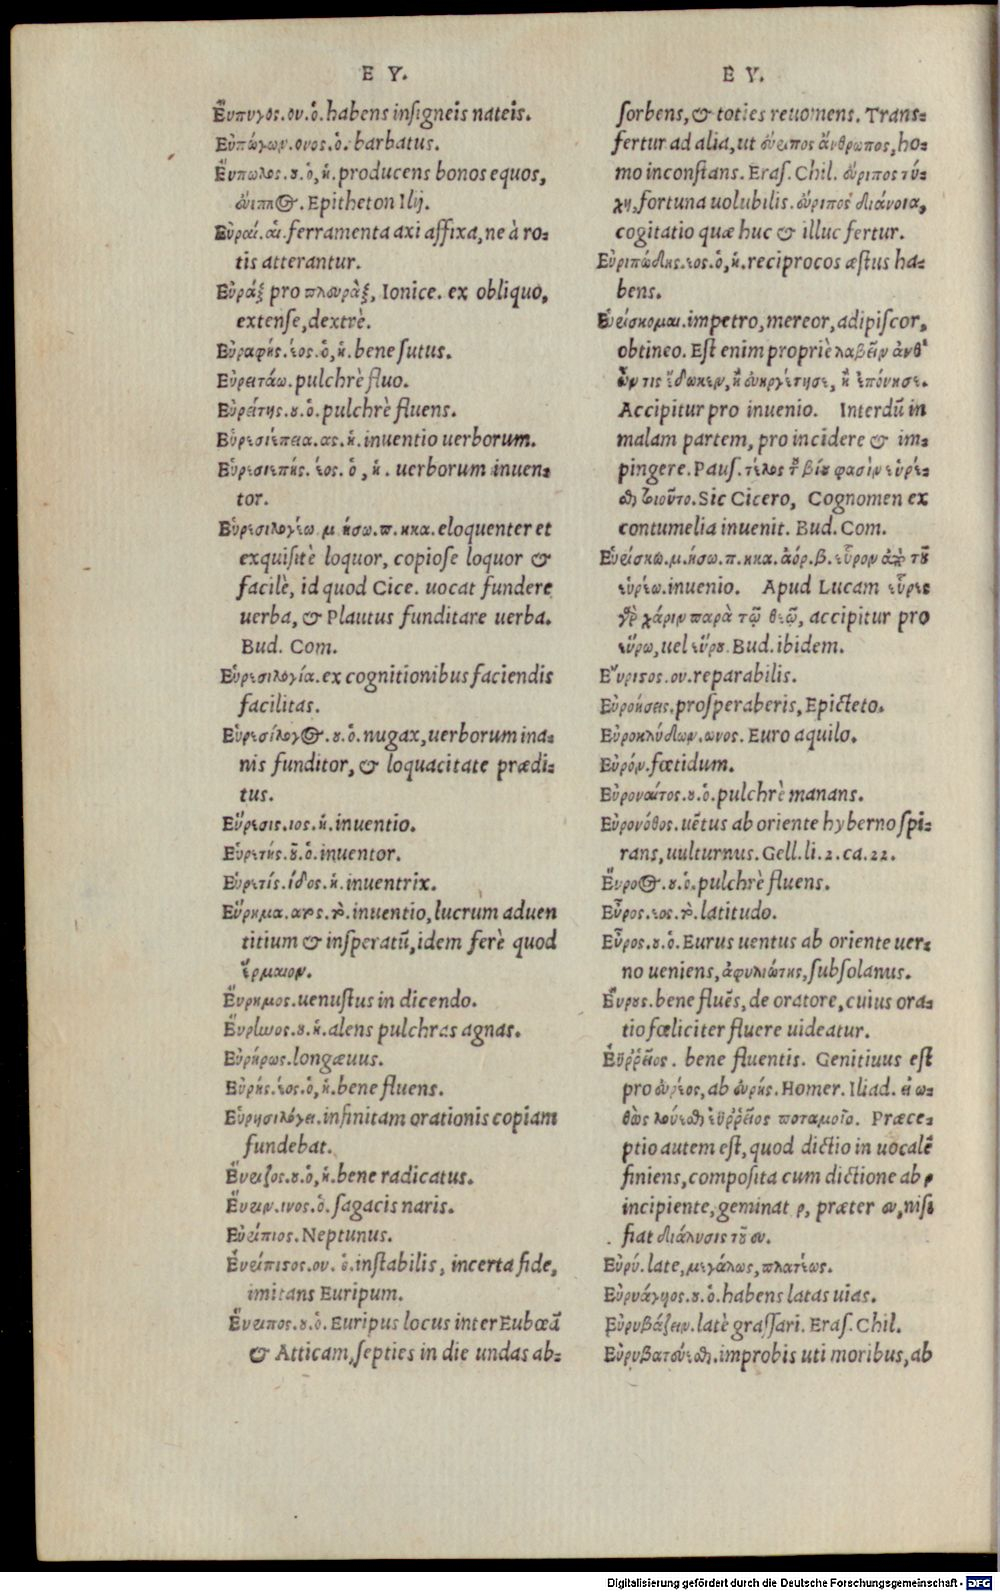 E Y.
Εὔπυγος.ου.ὁ.habens inſigneis nateis.
Εὐπώγων.ονος.ὁ.barbatus.
Εὔπωλος.ου.ὁ,ἡ.producens bonos equos,
εὔιππος. Epitheton Ilij.
Εὐραί.αἱ.ferramenta axi affixa,ne à ro⸗
tis atterantur.
Εὐράξ pro πλευράξ, Ionice. ex obliquo,
extenſe,dextrè.
Εὐραφής.έος.ὁ,ἡ.bene ſutus.
Εὐρειτάω.pulchrè fluo.
Εὐρείτης.ου.ὁ.pulchrè fluens.
Εὑρεσιέπεια.ας.ἡ.inuentio uerborum.
Εὑρεσιεπής. έος. ὁ, ἡ. uerborum inuen⸗
tor.
Εὑρεσιλογέω.μ.ήσω.π.ηκα.eloquenter et
exquiſitè loquor, copioſe loquor &
facilè, id quod Cice. uocat fundere
uerba, & Plautus funditare uerba.
Bud. Com.
Εὑρεσιλογία.ex cognitionibus faciendis
facilitas.
Εὑρεσίλογος.ου.ὁ.nugax,uerborum ina⸗
nis funditor, & loquacitate prædi⸗
tus.
Εὕρεσις.ιος.ἡ.inuentio.
Εὑρετής.οῦ.ὁ.inuentor.
Εὑρετίς.ίδος.ἡ.inuentrix.
Εὕρημα.ατος.τό.inuentio,lucrum aduen
titium & inſperatũ,idem ferè quod
ἕρμαιον.
Εὔρημος.uenuſtus in dicendo.
Εὔρηνος.ου.ἡ.alens pulchras agnas.
Εὐρήρως.longæuus.
Εὐρής.έος.ὁ,ἡ.bene fluens.
Εὑρησιλόγει.infinitam orationis copiam
fundebat.
Εὔριζος.ου.ὁ,ἡ.bene radicatus.
Εὔριν.ινος.ὁ.ſagacis naris.
Εὐρίπιος.Neptunus.
Εὐρίπιστος.ου. ὁ.inſtabilis, incerta fide,
imitans Euripum.
Εὔριπος.ου.ὁ.Euripus locus inter Eubœã
& Atticam,ſepties in die undas ab⸗
E Y.
ſorbens,& toties reuomens. Trans⸗
fertur ad alia,ut εὔριπος ἄνθρωπος,ho⸗
mo inconſtans. Eraſ. Chil. εὔριπος τύ⸗
χη,fortuna uolubilis. εὔριπος διάνοια,
cogitatio quæ huc & illuc fertur.
Εὐριπώδης.εος.ὁ,ἡ.reciprocos æſtus ha⸗
bens.
Εὑρίσκομαι.impetro,mereor,adipiſcor,
obtineo. Eſt enim propriè λαβεῖν ἀνθ᾽
ὧν τις ἔδωκεν, ἢ εὐηργέτησε, ἢ ἐπόνησε.
Accipitur pro inuenio. Interdũ in
malam partem, pro incidere & im⸗
pingere. Pauſ. τέλος τοῦ βίου φασὶν εὑρέ⸗
σθαι τοιοῦτο. Sic Cicero, Cognomen ex
contumelia inuenit. Bud. Com.
Εὑρίσκω.μ.ήσω.π.ηκα.ἀόρ.β.εὗρον ἀπὸ τοῦ
εὑρέω.inuenio. Apud Lucam εὗρες
γὰρ χάριν παρὰ τῷ θεῷ, accipitur pro
εὕρω,uel εὕρου. Bud. ibidem.
Εὔριστος.ου.reparabilis.
Εὐροήσεις.proſperaberis, Epicteto.
Εὐροκλύδων.ωνος. Euro aquilo.
Εὐρόν.fœtidum.
Εὐροναύτος.ου.ὁ.pulchrè manans.
Εὐρονότος.uẽtus ab oriente hyberno ſpi⸗
rans,uulturnus. Gell.li.2.ca.22.
Εὔροος.ου.ὁ.pulchrè fluens.
Εὖρος.εος.τό.latitudo.
Εὖρος.ου.ὁ. Eurus uentus ab oriente uer⸗
no ueniens,ἀφηλιώτης,ſubſolanus.
Εὔρους.bene fluẽs, de oratore, cuius ora⸗
tio fœliciter fluere uideatur.
Εὐῤῥεῖος. bene fluentis. Genitiuus eſt
pro εὐρέος, ab εὐρής. Homer. Iliad. εἰω⸗
θὼς λούεσθαι εὐῤῥεῖος ποταμοῖο. Præce⸗
ptio autem eſt,quod dictio in uocalẽ
finiens,compoſita cum dictione ab ρ
incipiente,geminat ρ, præter ευ,niſi
fiat διάλυσις τοῦ ευ.
Εὐρύ.late,μεγάλως,πλατέως.
Εὐρυάγυιος.ου.ὁ.habens latas uias.
Εὐρυβάζειν.latè graſſari. Eraſ. Chil.
Εὐρυβατεύεσθαι.improbis uti moribus,ab
Digitalisierung gefördert durch die Deutsche Forschungsgemeinschaft - DFG